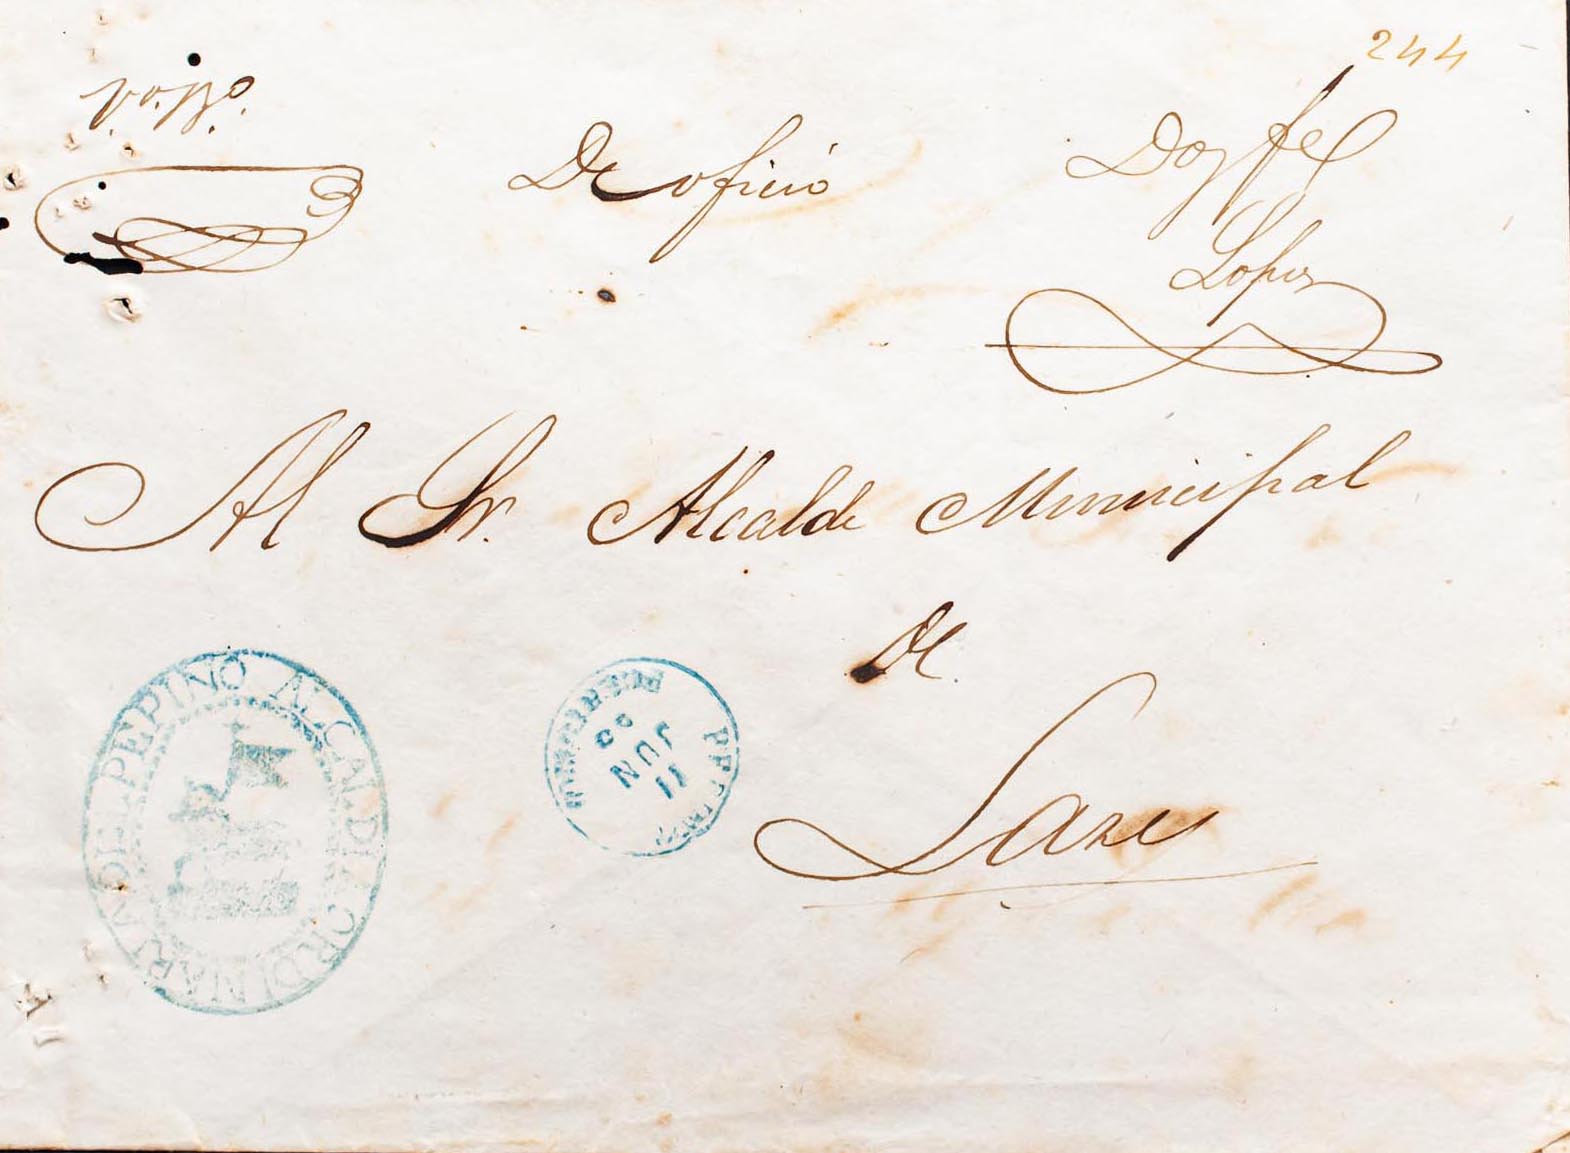 244
Vo. Bo.
De oficio
Doy fe
Lopez
Al Sr. Alcalde Municipal
de
Lares
ALCALDIA ORDINARIA DEL PEPINO
PEPINO
11
JUN